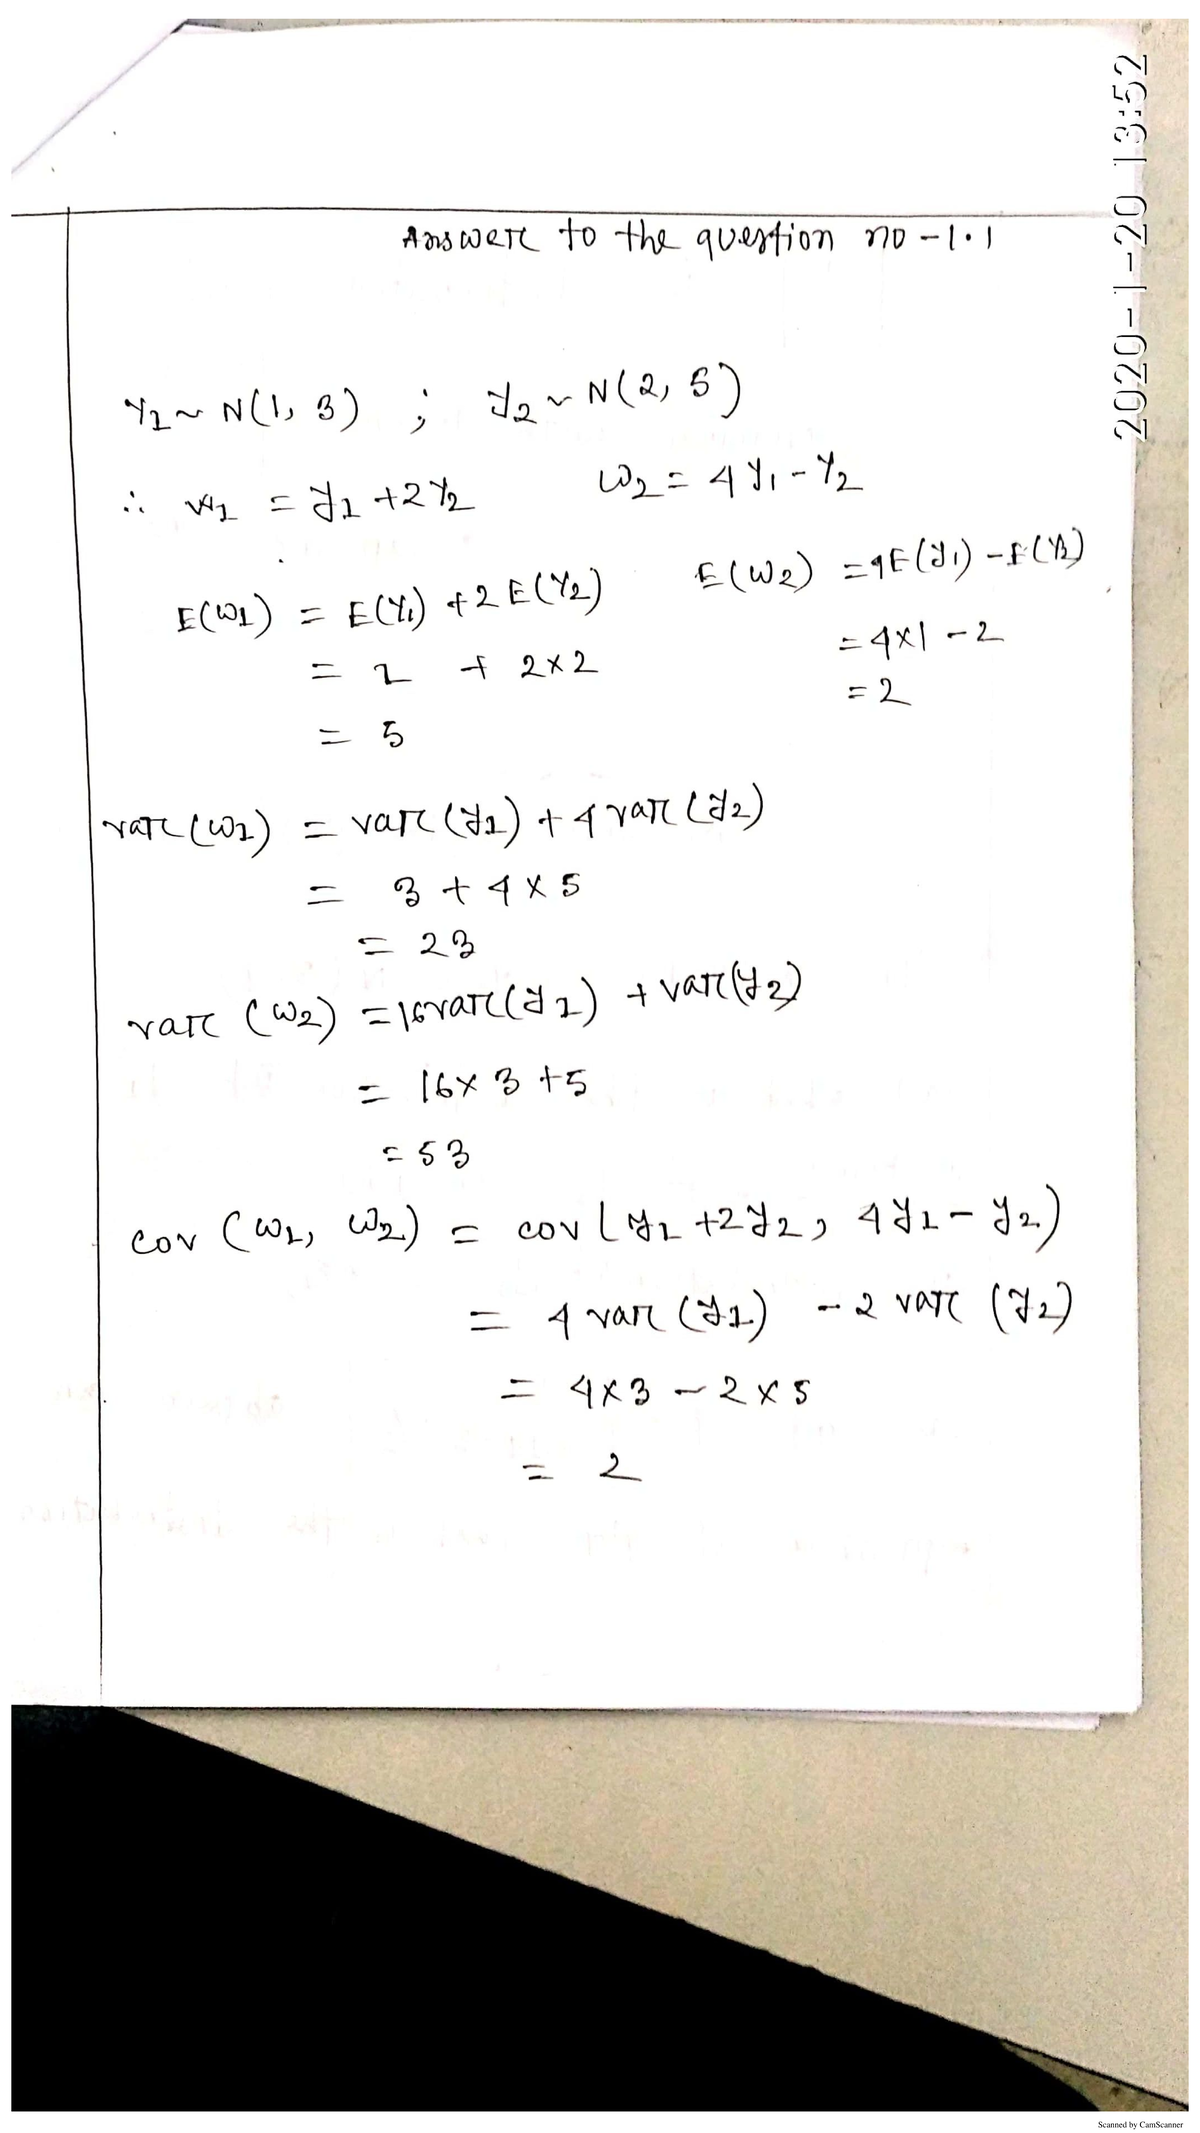 Answer to the question no - 1.1
Y1 ~ N(1, 3) ; Y2 ~ N(2, 5)
∴ W1 = Y1 + 2Y2 W2 = 4Y1 - Y2
E(W1) = E(Y1) + 2E(Y2) E(W2) = 4E(Y1) - E(Y2)
= 1 + 2×2 = 4×1 - 2
= 5 = 2
var(W1) = var(Y1) + 4 var(Y2)
= 3 + 4 × 5
= 23
var (W2) = 16var(Y1) + var(Y2)
= 16× 3 +5
= 53
cov (W1, W2) = cov(Y1 +2Y2, 4Y1 - Y2)
= 4 var (Y1) - 2 var (Y2)
= 4×3 - 2×5
= 2
2020-1-20 13:52
Scanned by CamScanner